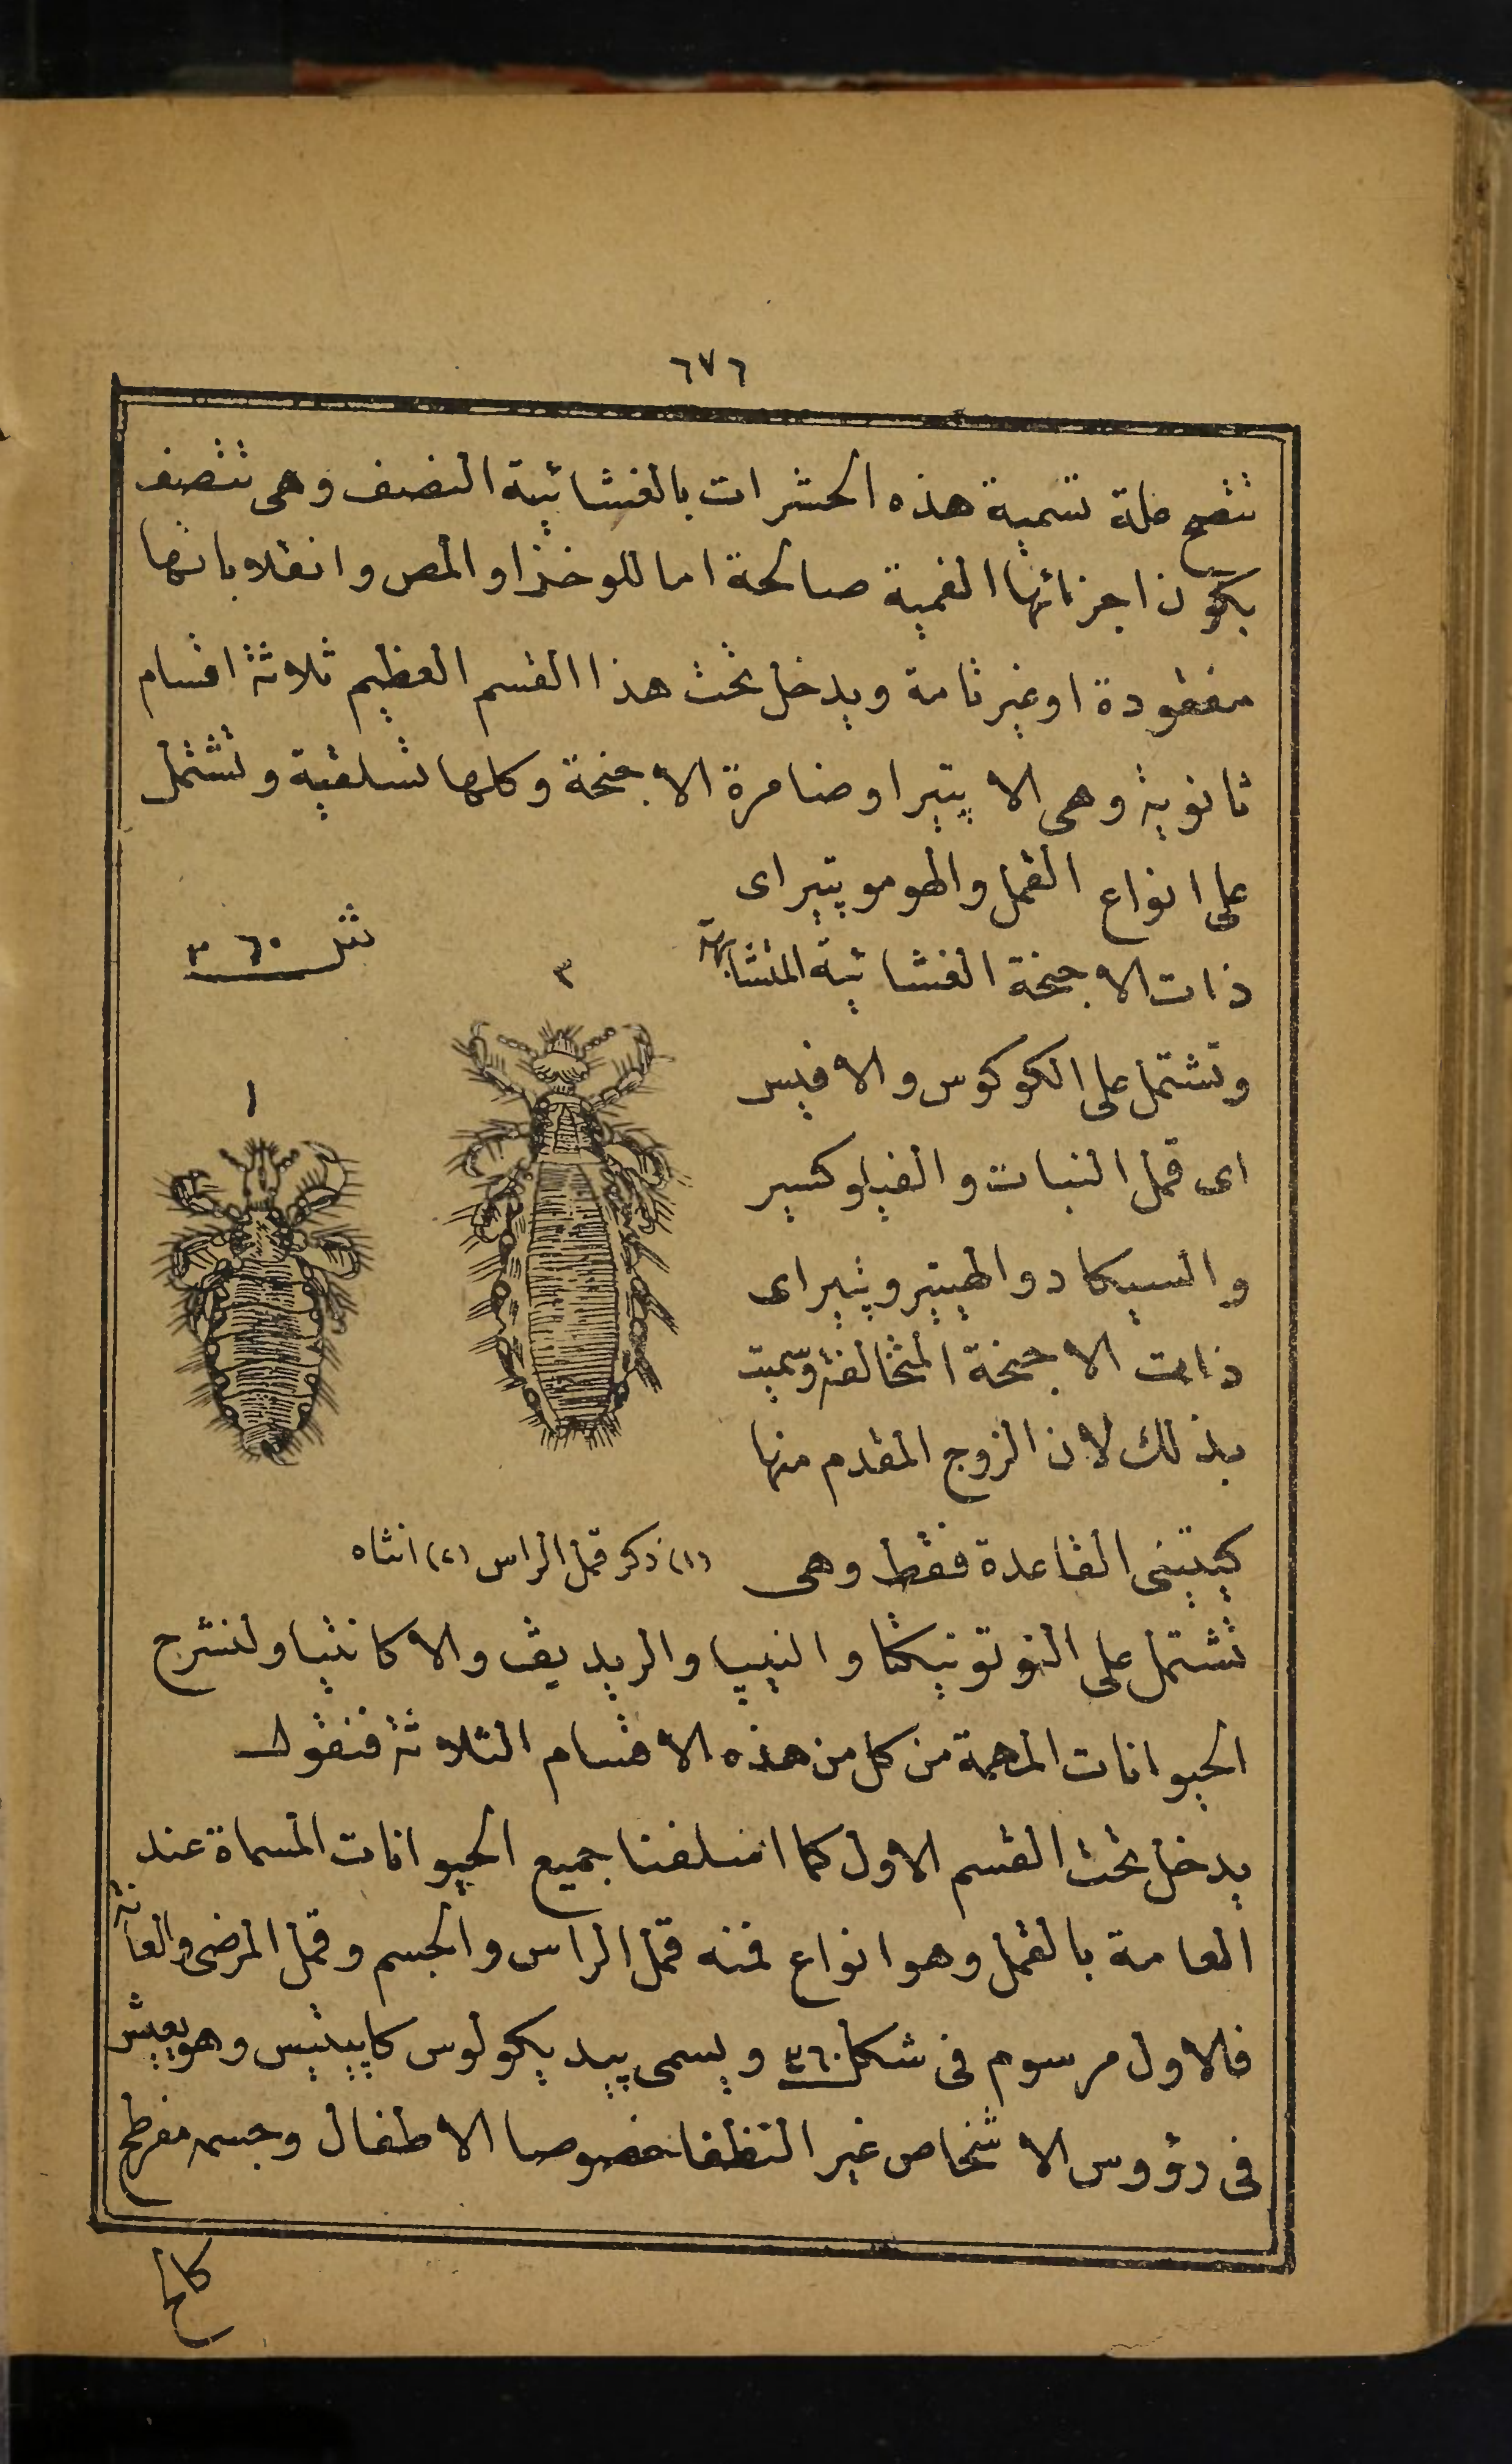 ٦٧٦
تتضح علة تسمية هذه الحشرات بالغشائية النصف وهى تتصف
بكون اجزائها الفمية صالحة اما للوخز او المص وانقلاباتها
مفقودة او غير تامة ويدخل تحت هذا القسم العظيم ثلاثة اقسام
ثانوية وهى الا پتيرا وضامرة الاجنحة وكلها تسلقية وتشتمل
على انواع القمل والهوموپتيرا اى
ذات الاجنحة الغشائية المتشابهة
شكل ٣٦٠
٢
وتشتمل على الكوكوس والافيس
١
اى قمل النبات والفيلوكسير
والسيكاد والهيتيروپتيرا اى
ذات الاجنحة المتخالفة وسميت
بذلك لان الزوج المقدم منها
كيتينى القاعدة فقط وهى
(١) ذكر قمل الراس (٢) انثاه
تشتمل على النوتونيكتا والنيپا والريديف والاكانثيا ولنشرح
الحيوانات المهمة من كل من هذه الاقسام الثلاثة فنقول
يدخل تحت القسم الاول كما اسلفنا جميع الحيوانات المسماة عند
العامة بالقمل وهو انواع فمنه قمل الراس والجسم وقمل المرضى والعانة
فالاول مرسوم فى شكل ٣٦٠ ويسمى پيديكولوس كاپيتيس وهو يعيش
فى رؤوس الاشخاص غير النظفا خصوصا الاطفال وجسمه مفرطح